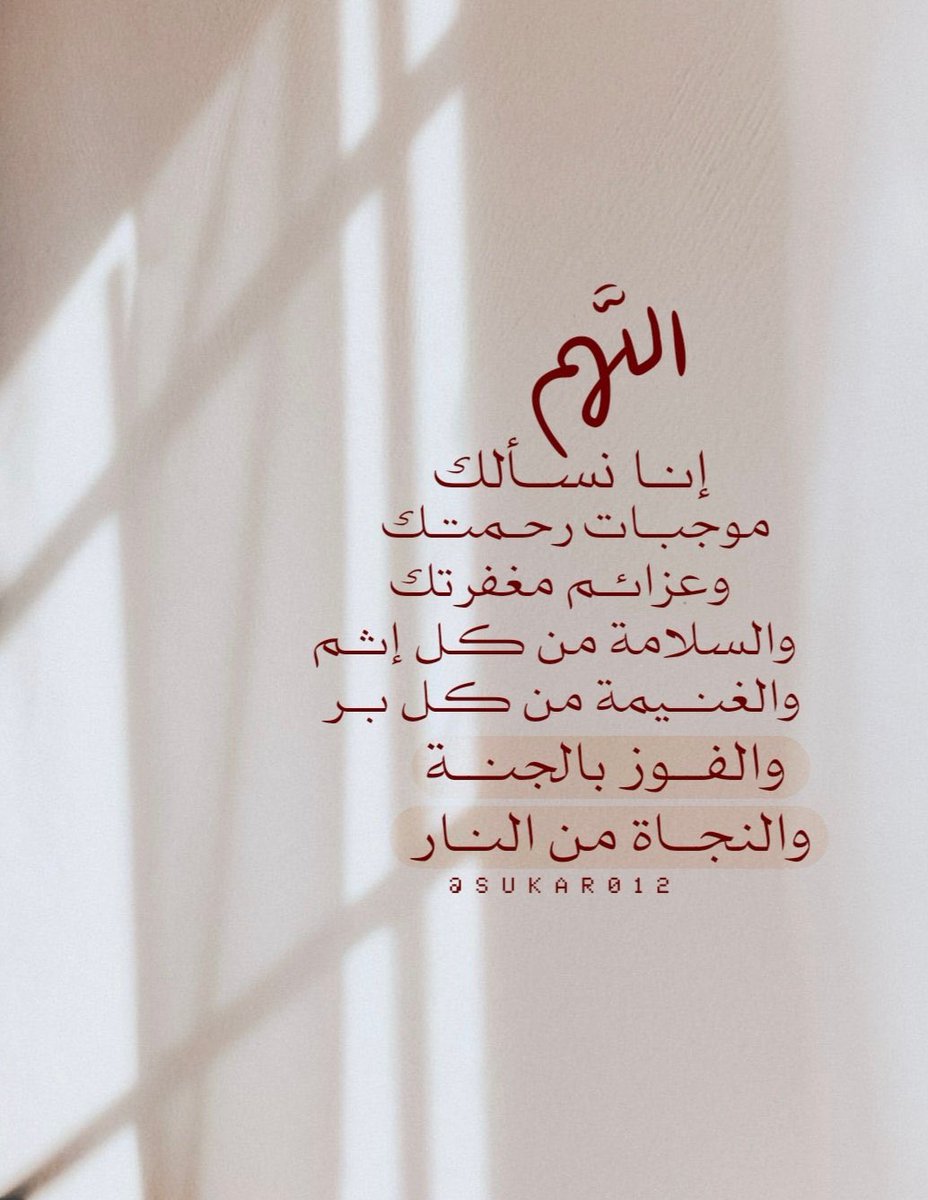 اللَّهم
إنا نسألك
موجبات رحمتك
وعزائم مغفرتك
والسلامة من كل إثم
والغنيمة من كل بر
والفوز بالجنة
والنجاة من النار
@SUKAR012